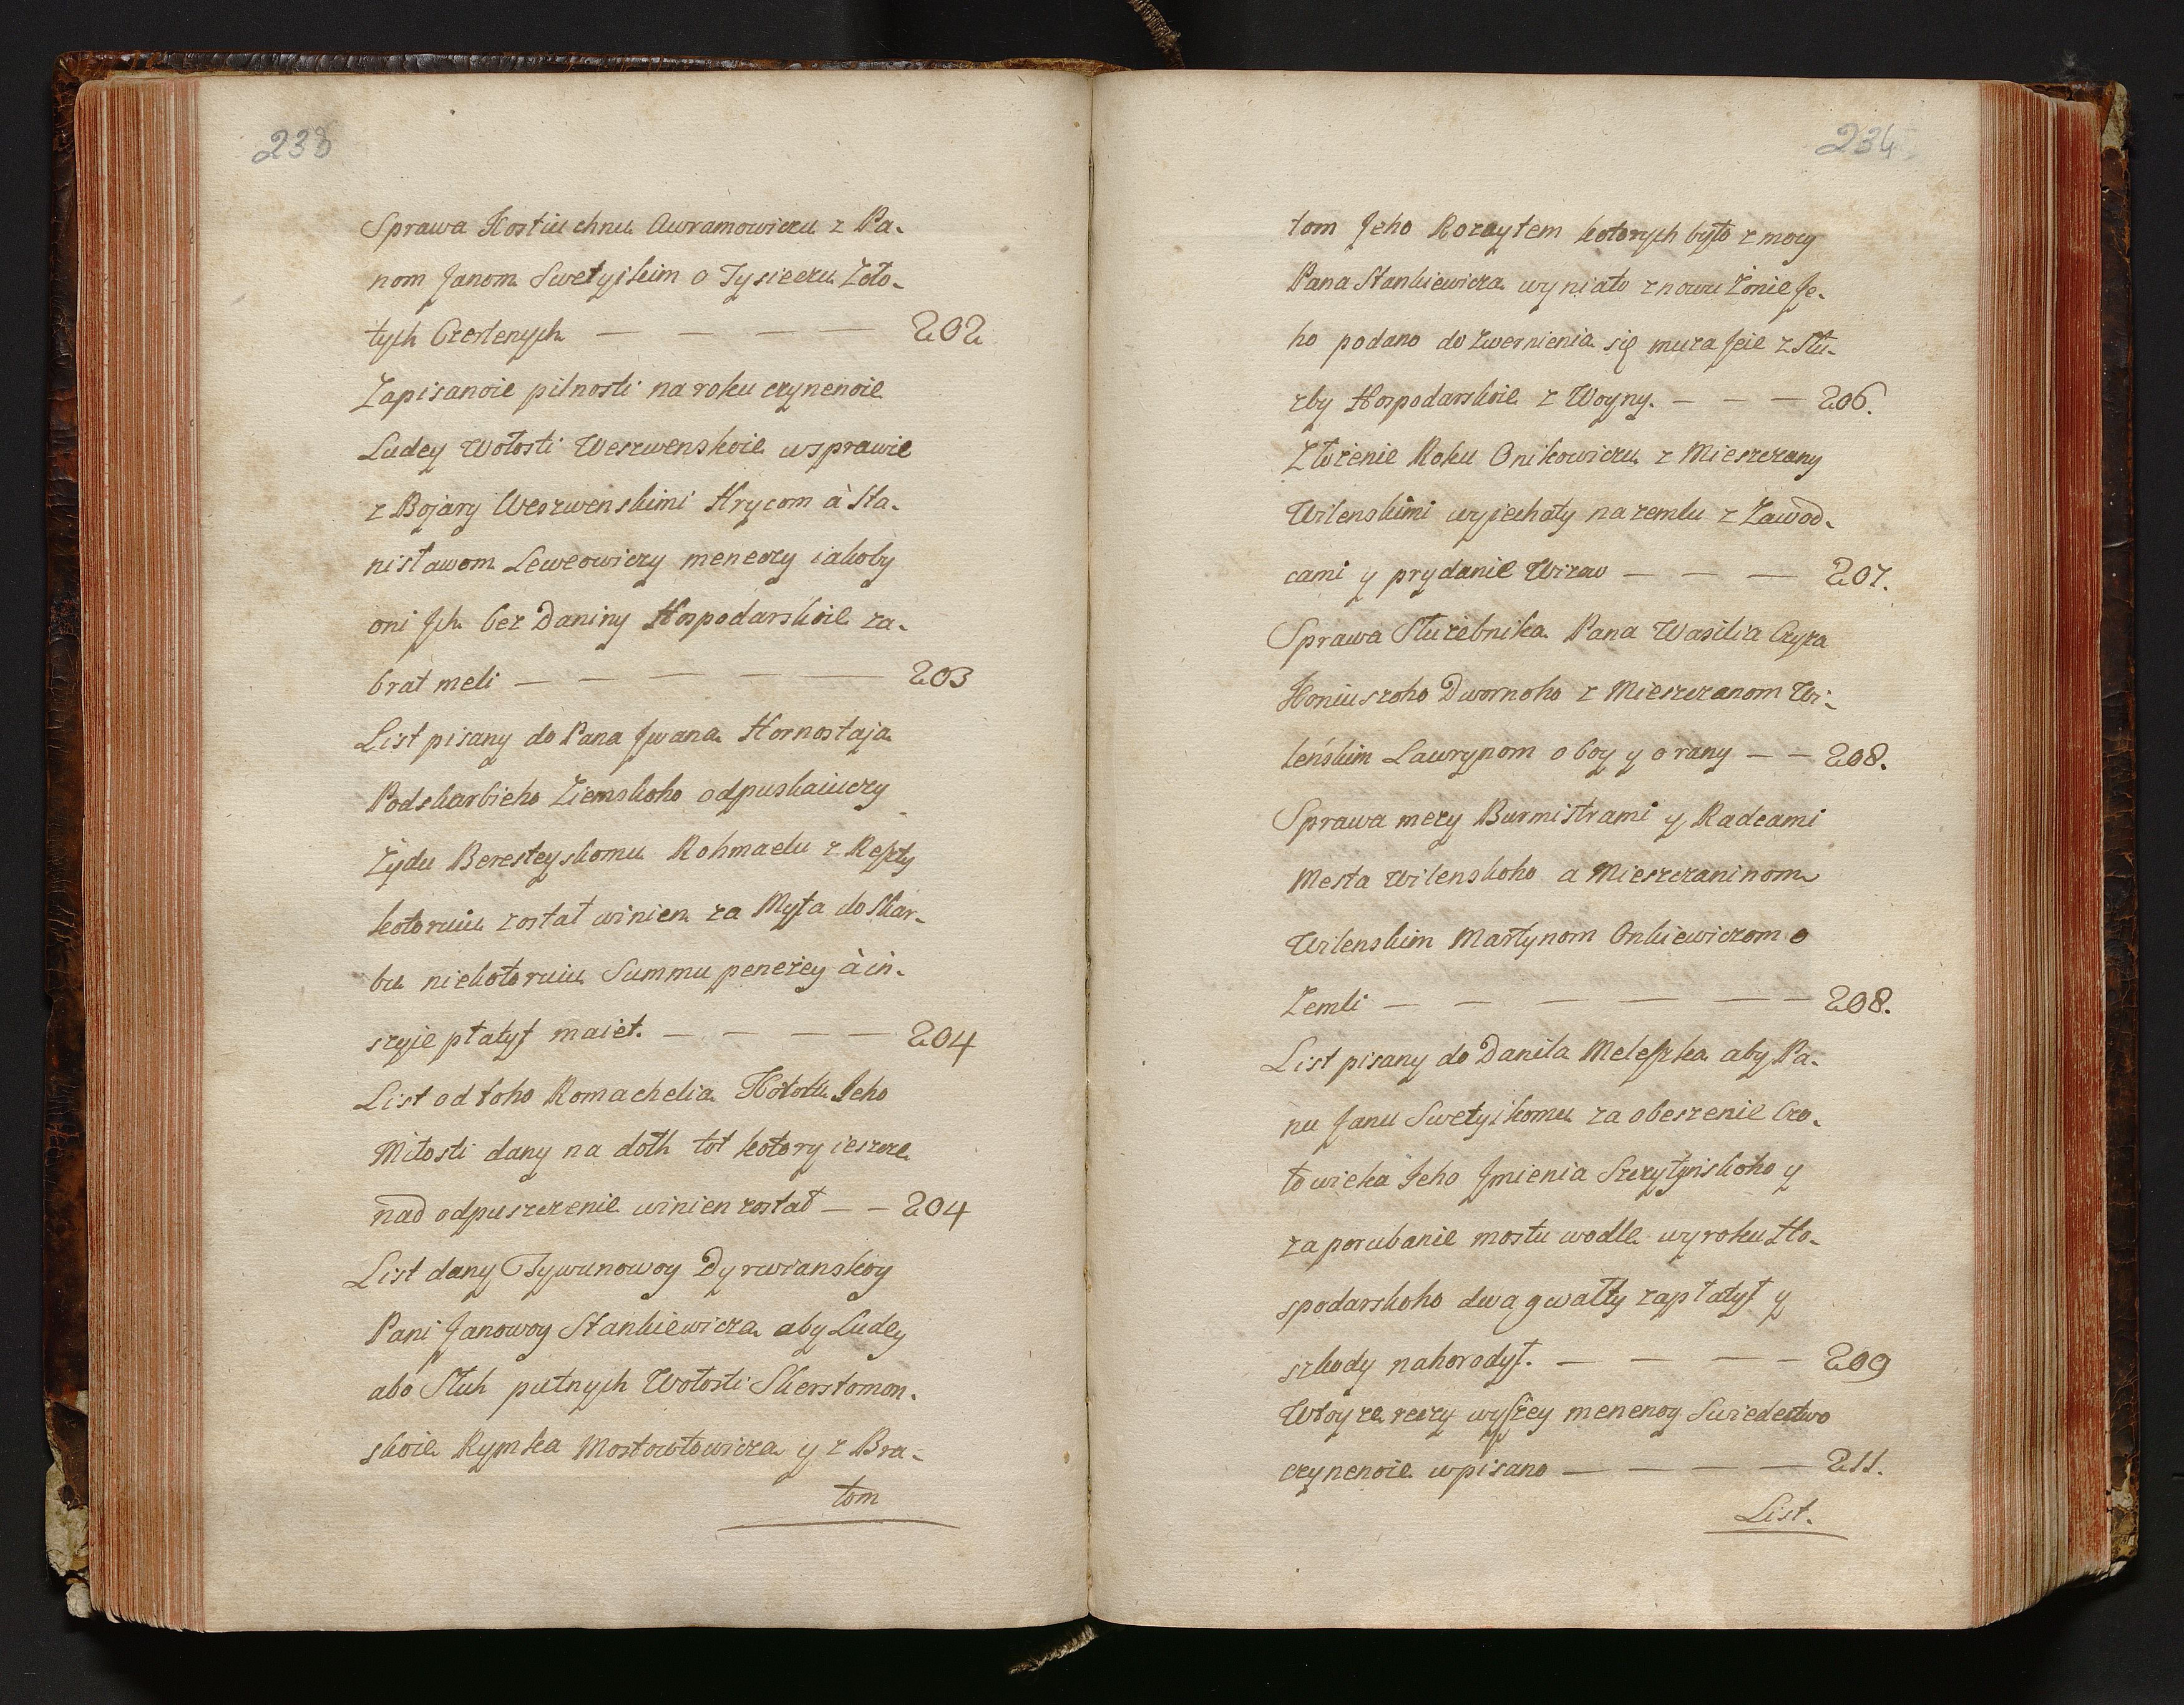 233
Sprawa Kostiuchnu Awramowiczu z Pa-
nom Janom Swetyiskim o Tysieczu Zoło-
tych Czerlenych — — — — 202
Zapisanoie pilnosti na roku czynenoie
Ludey Wołosti Weszwenskoie w sprawie
z Bojary Weszwenskimi Hrycom à Sta-
nisławom Leweowiczy meneczy iakoby
oni Jch bez Daniny Hospodarskoie za-
brat meli — — — — — 203
List pisany do Pana Jwana Hornostaja
Podskarbieho Ziemskoho odpuskaiuczy
Żydu Beresteyskomu Rohmaelu z Reszty
kotoruiu został winien za Myta do Skar-
bu niekotoruiu Summu penezey à in-
szyie płatyt maiet. — — — — 204
List od toho Romachelia Jeho
Miłosti dany na dołh tot kotory ieszcze
nad odpuszczenie winien został — — 204
List dany Tywunowoy Dyrwianskoy
Pani Janowoy Stankiewicza aby Ludey
abo Słuh putnych Wołosti Skerstomon-
skoie Rymka Mostowtowicza y z Bra-
tom
234
tom Jeho Rozaytem kotorych było z mocy
Pana Stankiewicza wyniato znowu Żonie Je-
ho podano do zwernienia się muża Jeie z Słu-
żby Hospodarskoie z Woyny. — — — 206.
Złożenie Roku Onikowiczu z Mieszczany
Wilenskimi wyiechaty na zemlu z Zawod-
cami y prydanie Wizow — — — 207.
Sprawa Służebnika Pana Wasilia Czyża
Koniuszoho Dwornoho z Mieszczanom Wi-
leńskim Ławrynom o boy y o rany — — 208.
Sprawa mezy Burmistrami y Radcami
Mesta Wilenskoho a Mieszczaninom
Wilenskim Martynom Onkiewiczom o
Zemli — — — — — — 208.
List pisany do Daniła Meleszka aby Pa-
nu Janu Swetyiskomu za obeszenie Czo-
łowieka Jeho Jmienia y
za porubanie mostu wodle wyroku Ho-
spodarskoho dwa gwałty zapłatyt y
szkody nahorodyt. — — — — 209
W toy ze reczy wyszey menenoy Swiedectwo
czynenoie wpisano — — — — 211.
List.